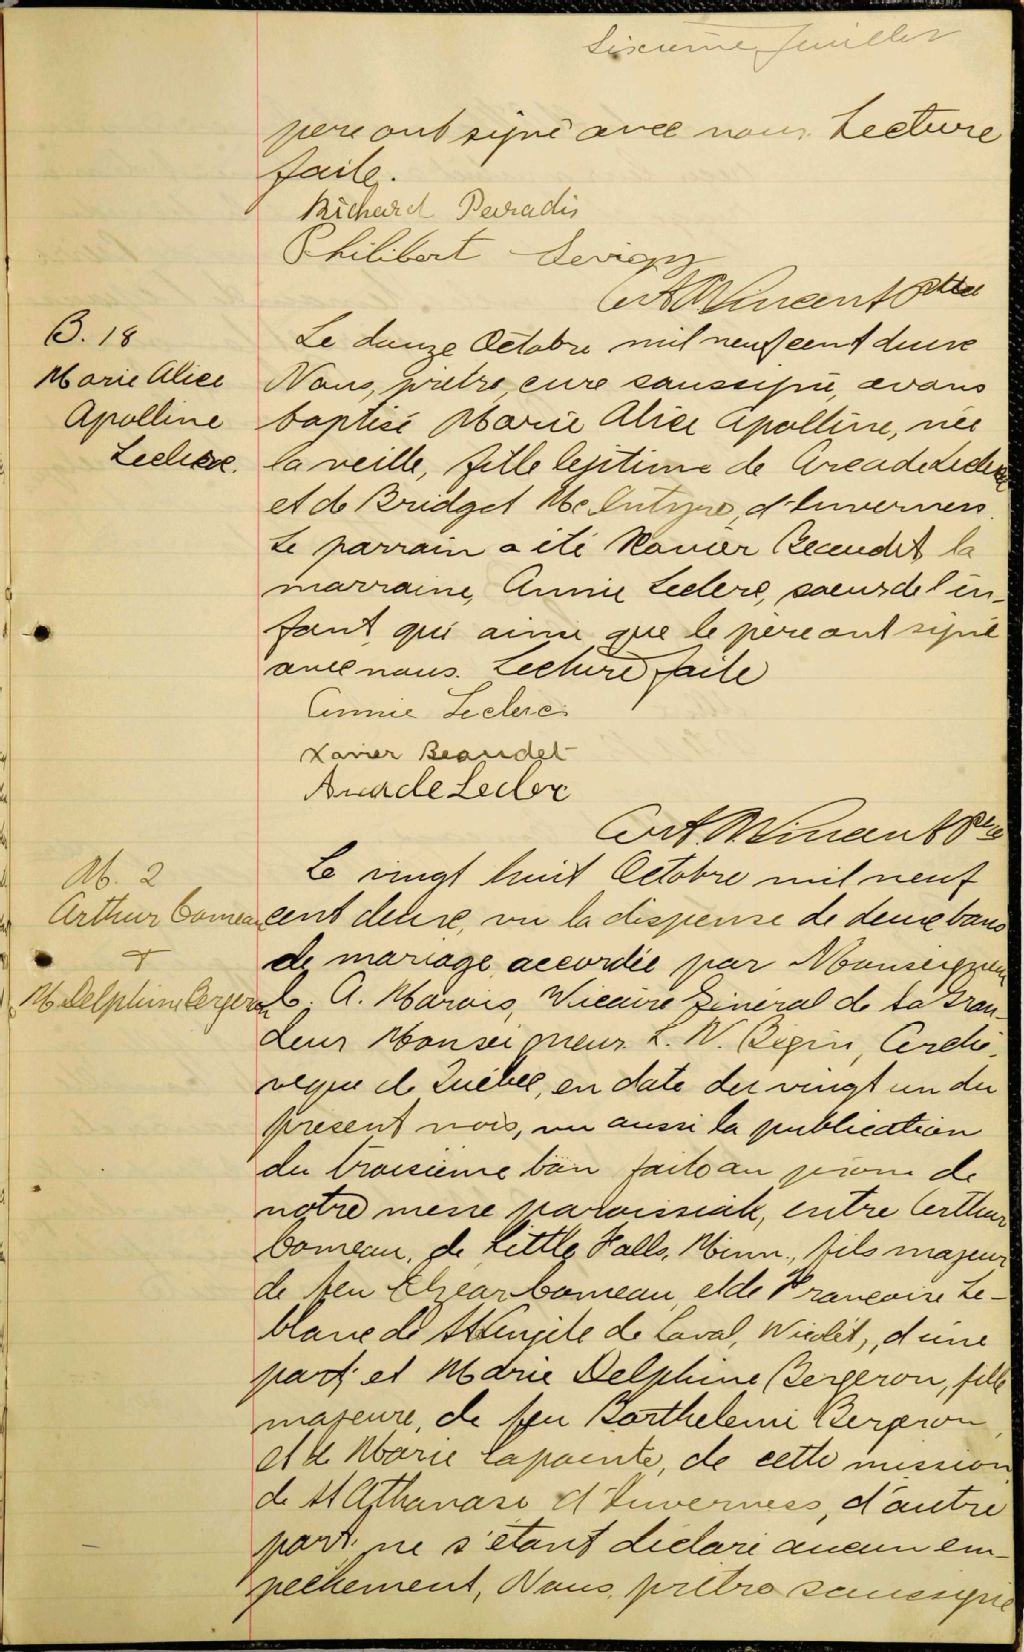 Sixième feuillet
père ont signé avec nous. Lecture
faite.
Richard Paradis
Philibert Sevigny
Art. Vincent Ptre
B. 18
Marie Alice
Apolline
Leclerc.
Le douze Octobre mil neuf cent deux
Nous, prêtre, curé soussigné, avons
baptisé Marie Alice Apolline, née
la veille, fille légitime de Arcade Leclerc
et de Bridget McIntyre, d'Inverness.
Le parrain a été Xavier Beaudet, la
marraine, Annie Leclerc, soeur de l'en-
fant, qui ainsi que le père ont signé
avec nous. Lecture faite
Annie Leclerc
Xavier Beaudet
Arcade Leclerc
Art. Vincent Ptre
M. 2
Arthur Comeau
+
M. Delphine Bergeron
Le vingt huit Octobre mil neuf
cent deux, vu la dispense de deux bans
de mariage accordée par Monseigneur
C. A. Marois, Vicaire Général de Sa Gran-
deur Monseigneur L. N. Bégin, Arche-
vêque de Québec, en date du vingt un du
présent mois, vu aussi la publication
du troisième ban faite au prône de
notre messe paroissiale, entre Arthur
Comeau, de Little Falls, Minn., fils majeur
de feu Elzear Comeau et de Françoise Le-
blanc de Ste Brigitte de Laval, Nicolet, d'une
part; et Marie Delphine Bergeron, fille
majeure, de feu Barthelemi Bergeron
et de Marie Lapointe, de cette mission
de St Athanase d'Inverness, d'autre
part; ne s'étant déclaré aucun em-
pêchement, Nous, prêtre soussigné